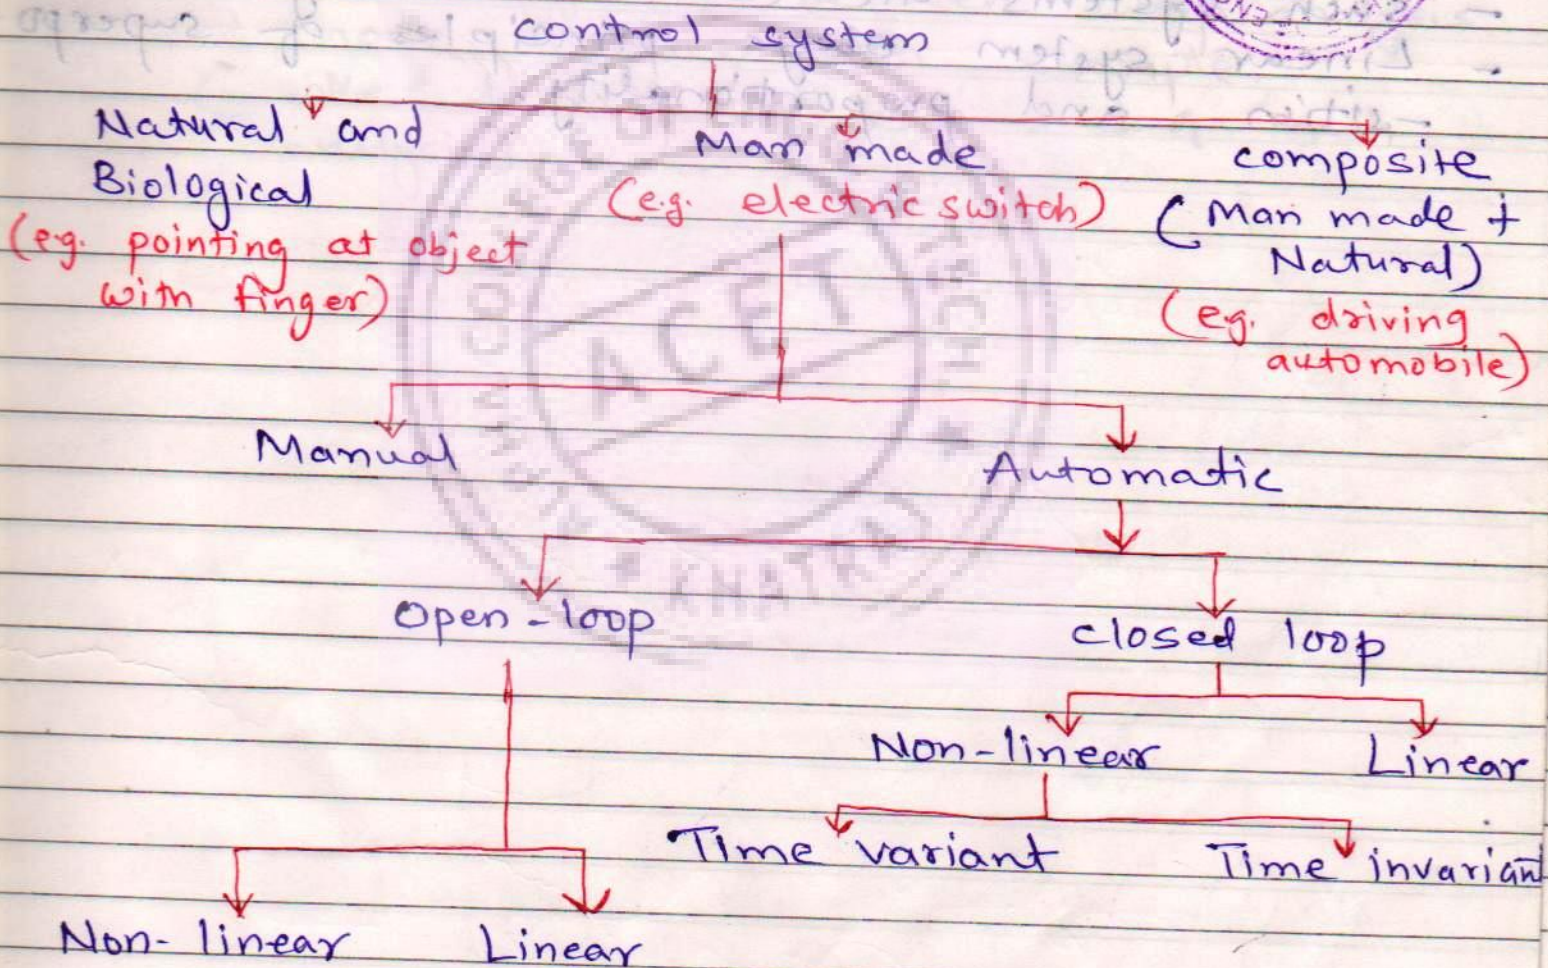 control system
Natural and
Biological
(e.g. pointing at object
with finger)
Man made
(e.g. electric switch)
composite
(Man made +
Natural)
(e.g. driving
automobile)
Manual
Automatic
Open-loop
closed loop
Non-linear
Linear
Time variant
Time invariant
Non-linear
Linear
ACET
KHATRAJ